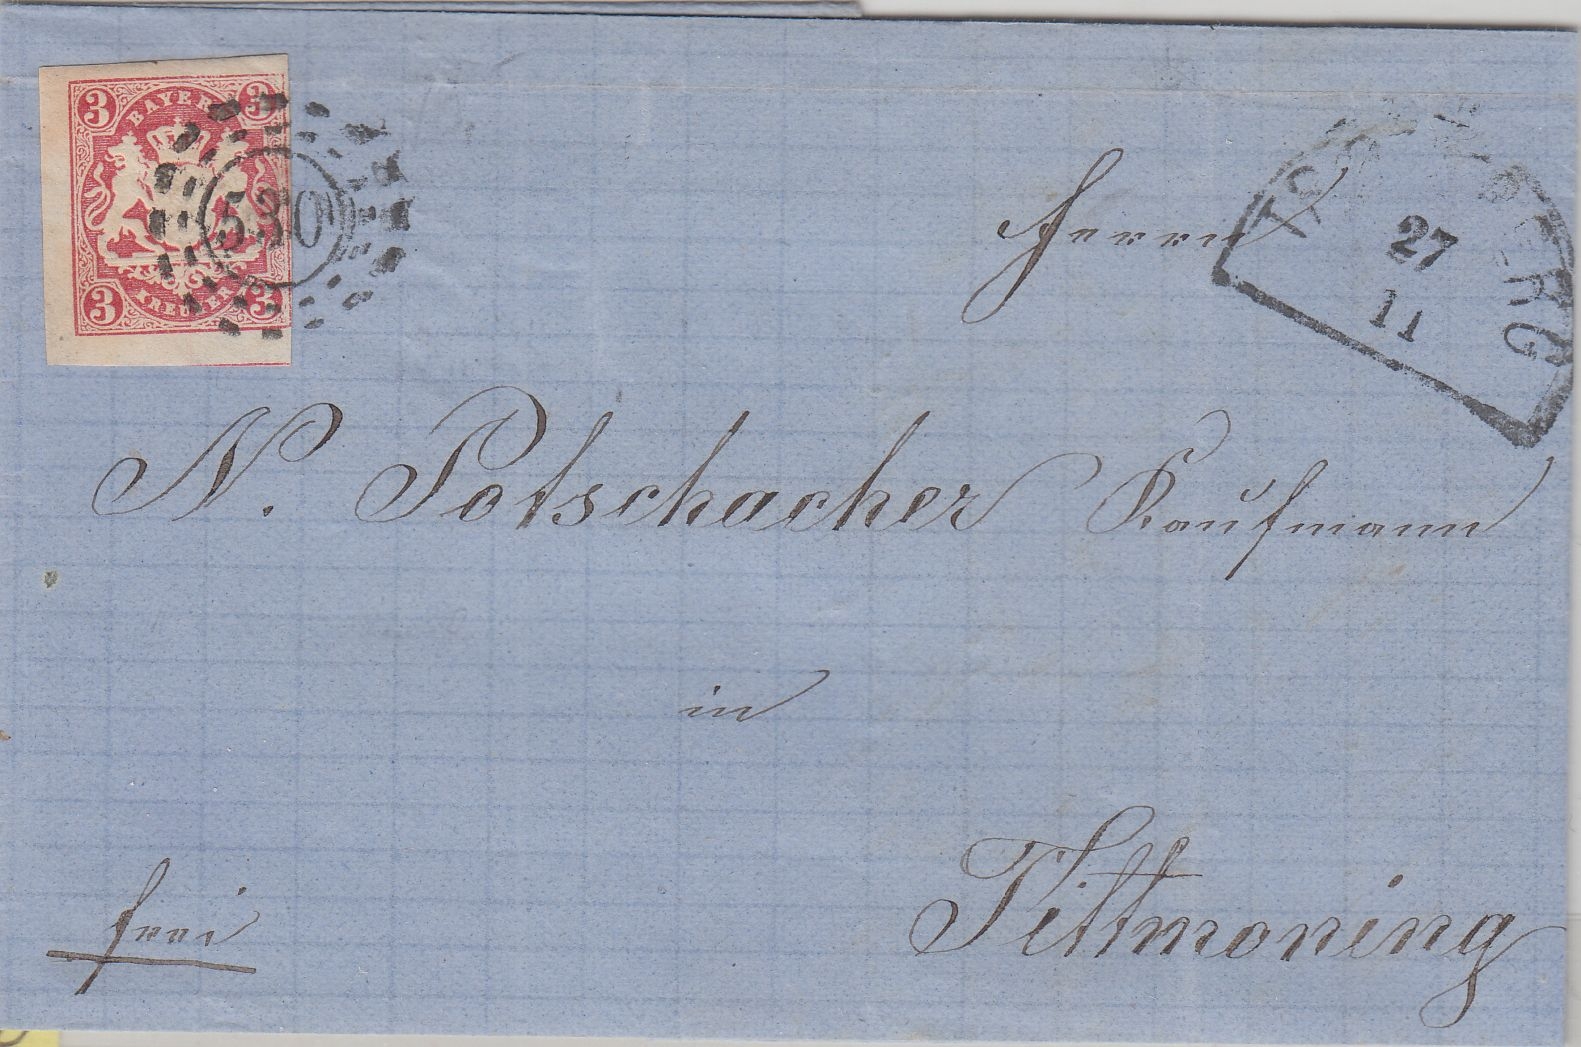 3 BAYERN 3
3 KREUZER 3
530
27
11
Herrn
N. Potschacher Kaufmann
in
Tittmoning
frei